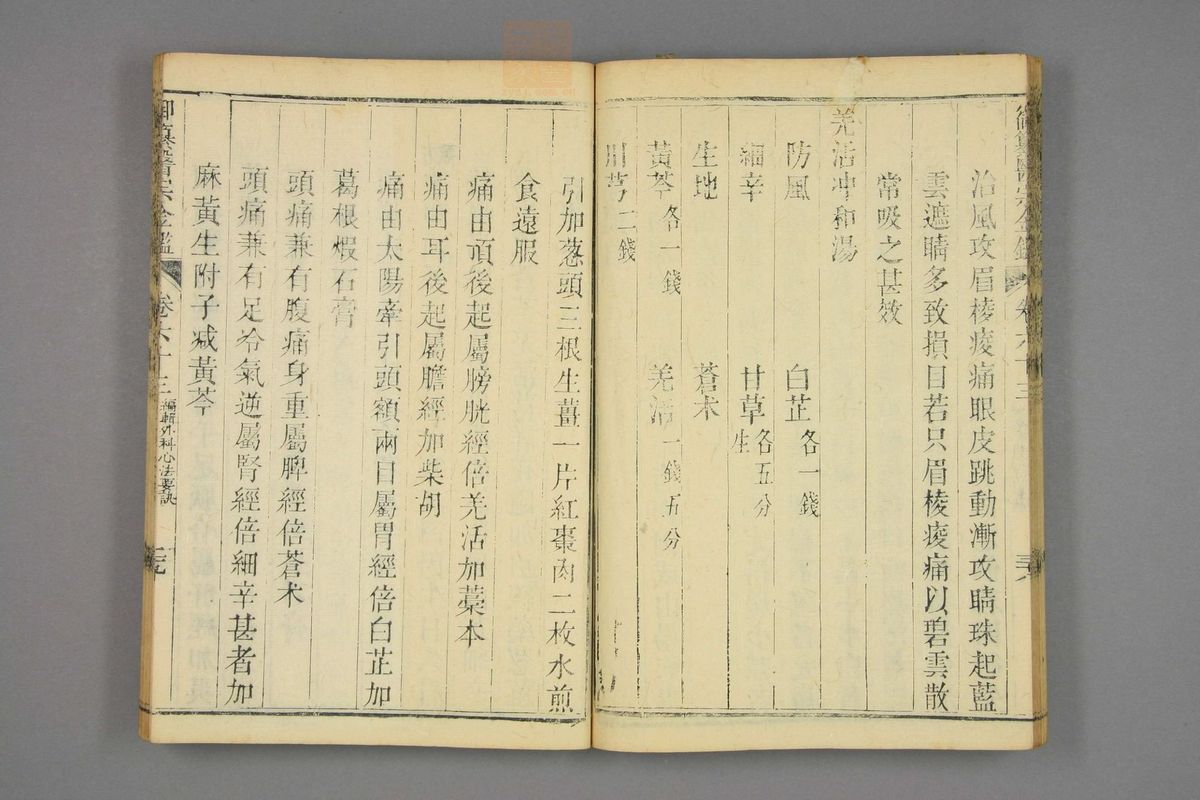 治風攻眉棱痠痛眼皮跳動漸攻睛珠起藍
雲遮睛多致損目若只眉棱痠痛以碧雲散
常吸之甚效
羌活冲和湯
防風 白芷各一錢
細辛 甘草生各五分
生地 蒼朮
黃芩各一錢 羌活一錢五分
川芎二錢
引加葱頭三根生薑一片紅棗肉二枚水煎
食遠服
痛由頂後起屬膀胱經倍羌活加藁本
痛由耳後起屬膽經加柴胡
痛由太陽牽引頭額兩目屬胃經倍白芷加
葛根煆石膏
頭痛兼有腹痛身重屬脾經倍蒼朮
頭痛兼有足冷氣逆屬腎經倍細辛甚者加
麻黃生附子减黃芩
御纂醫宗金鑑 卷六十三 編輯外科心法要訣